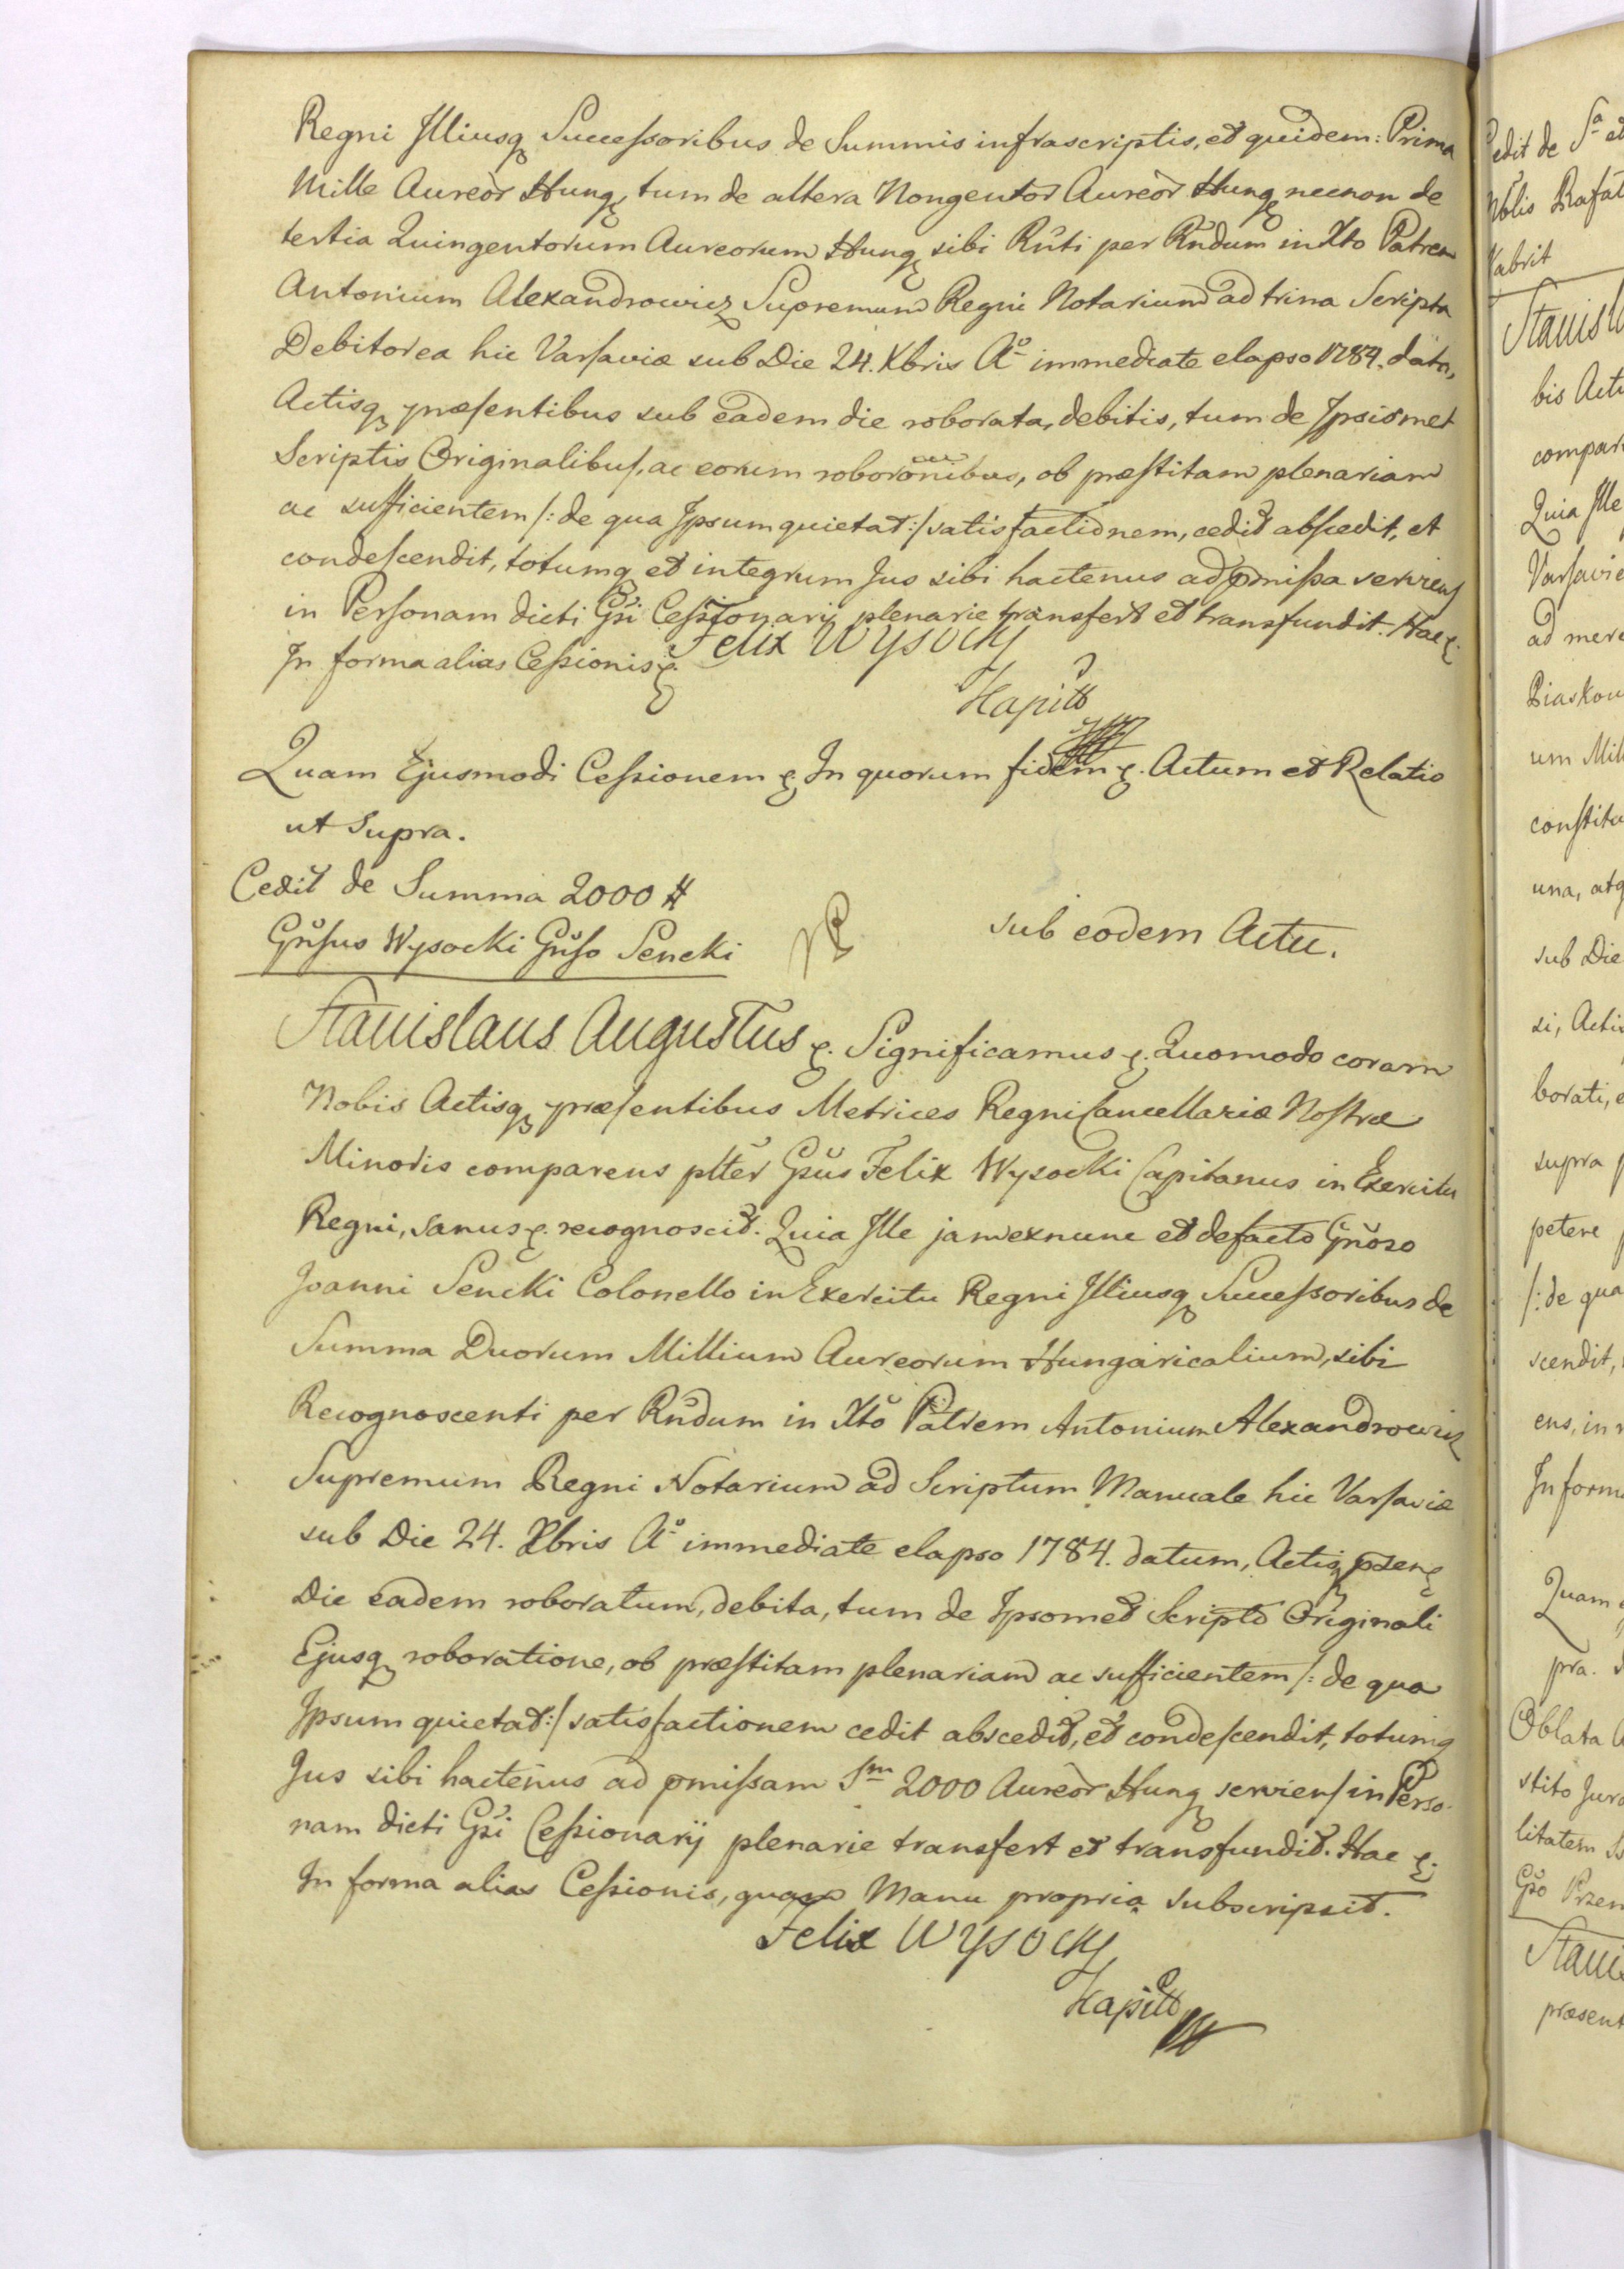 Regni Illiusq Successoribus de Summis infrascriptis, et quidem: Prima
Mille Aureor Hung, tum de altera Nongentor Aureor Hung necnon de
tertia Quingentorum Aureorum Hung sibi Rnti per Rndum in Xto Patrem
Antonium Alexandrowicz Supremum Regni Notarium ad trina Scripta
Debitorea hic Varsaviæ sub Die 24. Xbris Ao immediate elapso 1784. data,
Actisq præsentibus sub eadem die roborata, debitis, tum de Ipsismet
Scriptis Originalibus, ac eorum roboronibus, ob præstitam plenariam
ac sufficientem /: de qua Ipsum quietat :/ satisfactionem, cedit abscedit, et
condescendit, totumq et integrum Jus sibi hactenus ad pmissa serviens
in Personam dicti Gsi Cessionarij plenarie transfert et transfundit. Hac
In forma alias Cessionis
Felix Wysocky
Kapitt
Quam Ejusmodi Cessionem In quorum fidem Actum et Relatio
ut Supra.
Cedit de Summa 2000 #
Gnsus Wysocki Gnso Sencki
sub eodem Actu.
Stanislaus Augustus Significamus Quomodo coram
Nobis Actisq præsentibus Metrices Regni Cancellariæ Nostræ
Minoris comparens plter Gsus Felix Wysocki Capitanus in Exercitu
Regni, sanus recognoscit. Quia Ille jam exnunc et defacto Gnoso
Joanni Sencki Colonello in Exercitu Regni Illiusq Successoribus de
Summa Duorum Millium Aureorum Hungaricalium, sibi
Recognoscenti per Rndum in Xto Patrem Antonium Alexandrowicz
Supremum Regni Notarium ad Scriptum Manuale hic Varsaviæ
sub Die 24. Xbris Ao immediate elapso 1784. datum, Actisq pzen
Die eadem roboratum, debita, tum de Ipsomet Scripto Originali
Ejusq roboratione, ob præstitam plenariam ac sufficientem /: de qua
Ipsum quietat :/ satisfactionem cedit abscedit, et condescendit, totumq
Jus sibi hactenus ad pmissam Sm 2000 Aureor Hung serviens in Perso-
nam dicti Gsi Cessionarij plenarie transfert et transfundit. Hac
In forma alias Cessionis, quam Manu propria subscripsit.
Felix Wysocky
Kapitt